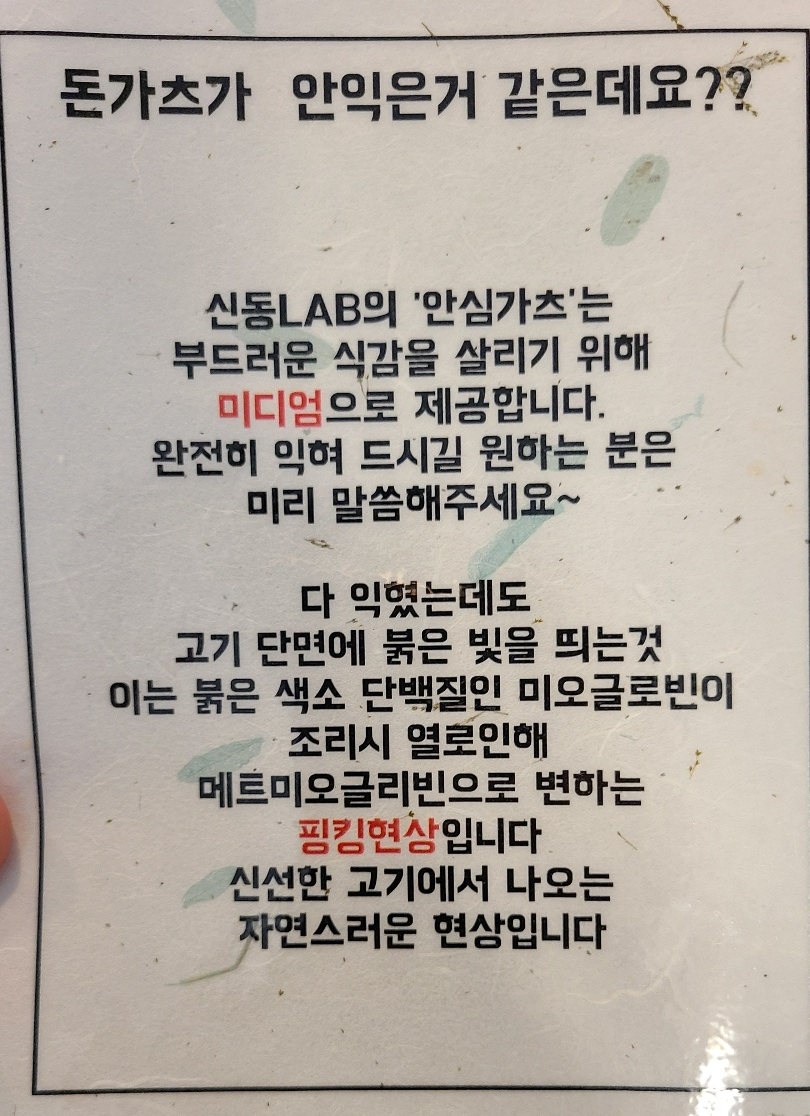 돈가츠가 안익은거 같은데요??
신동LAB의 '안심가츠'는
부드러운 식감을 살리기 위해
미디엄으로 제공합니다.
완전히 익혀 드시길 원하는 분은
미리 말씀해주세요~
다 익혔는데도
고기 단면에 붉은 빛을 띄는것
이는 붉은 색소 단백질인 미오글로빈이
조리시 열로인해
메트미오글리빈으로 변하는
핑킹현상입니다
신선한 고기에서 나오는
자연스러운 현상입니다